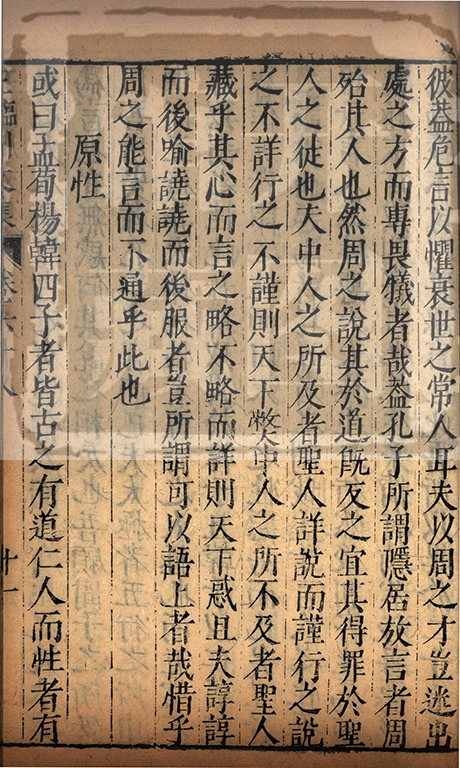 彼蓋危言以懼衰世之常人耳夫以周之才豈迷出
處之方而專畏犧者哉葢孔子所謂隱居放言者周
殆其人也然周之說其於道旣反之宜其得罪於聖
人之徒也夫中人之所及者聖人詳說而謹行之說
之不詳行之不謹則天下弊中人之所不及者聖人
藏乎其心而言之略不略而詳則天下惑且夫諄諄
而後喻譊譊而後服者豈所謂可以語上者哉惜乎
周之能言而不通乎此也
原性
或曰孟荀楊韓四子者皆古之有道仁人而性者有